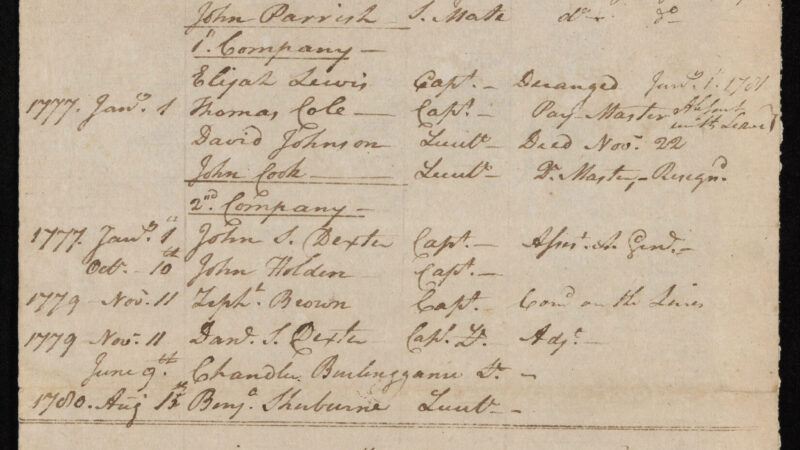 John Parrish S. Mate do do
1st Company —
Elijah Lewis Capt. — Deranged Jany. 1. 1781
1777. Jany. 1 Thomas Cole — Capt. — Pay-Master Absent with Leave
David Johnson Lieut. — Died Nov. 22
John Cook — Lieut. — Qr. Master, — Resignd.
2nd. Company —
1777. Jany. 1st John S. Dexter Capt. — Assist. A. Genl. —
Oct. 10th John Holden — Capt. —
1779 - Nov. 11 Zepht. Brown Capt. Comd on the Lines
1779 - Nov. 11 Danl. S. Dexter Capt. Lt. — Adjt. —
June 9th. Chandler Burlinggame Lt. —
1780. Aug 15 Benja. Sherburne Lieut. —